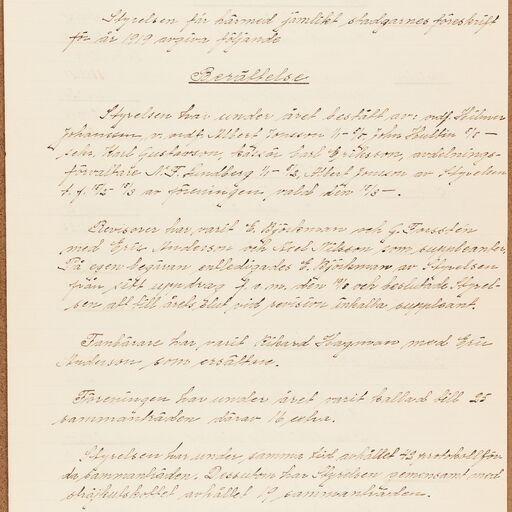 Styrelsen får härmed jämlikt stadgarnes föreskrift
för år 1919 avgiva följande
Berättelse
Styrelsen har under året bestått av: ordf. Hilmer
Johansson, v. ordf. Albert Jonsson John Hultin
sekr. Karl Gustavson, kassör Carl Eriksson, avdelnings-
förvaltare N. F. Lindberg Albert Jonson av Styrelsen
t. f. av föreningen, vald den
Revisorer har varit E. Björkman och G. Forssten
med Eric Anderson och Axel Nilsson som suppleanter.
På egen begäran entledigades E. Björkman av Styrelsen
från sitt uppdrag fr. o. m. den och beslutade Styrel-
sen att till årets slut vid revision inkalla suppleant.
Fanbärare har varit Rikard Hagman med Eric
Anderson som ersättare.
Föreningen har under året varit kallad till 25
sammanträden därav 16 extra.
Styrelsen har under samma tid avhållet 42 protokollför-
da sammanträden. Dessutom har Styrelsen gemensamt med
strejkutskottet avhållet 19 sammanträden.